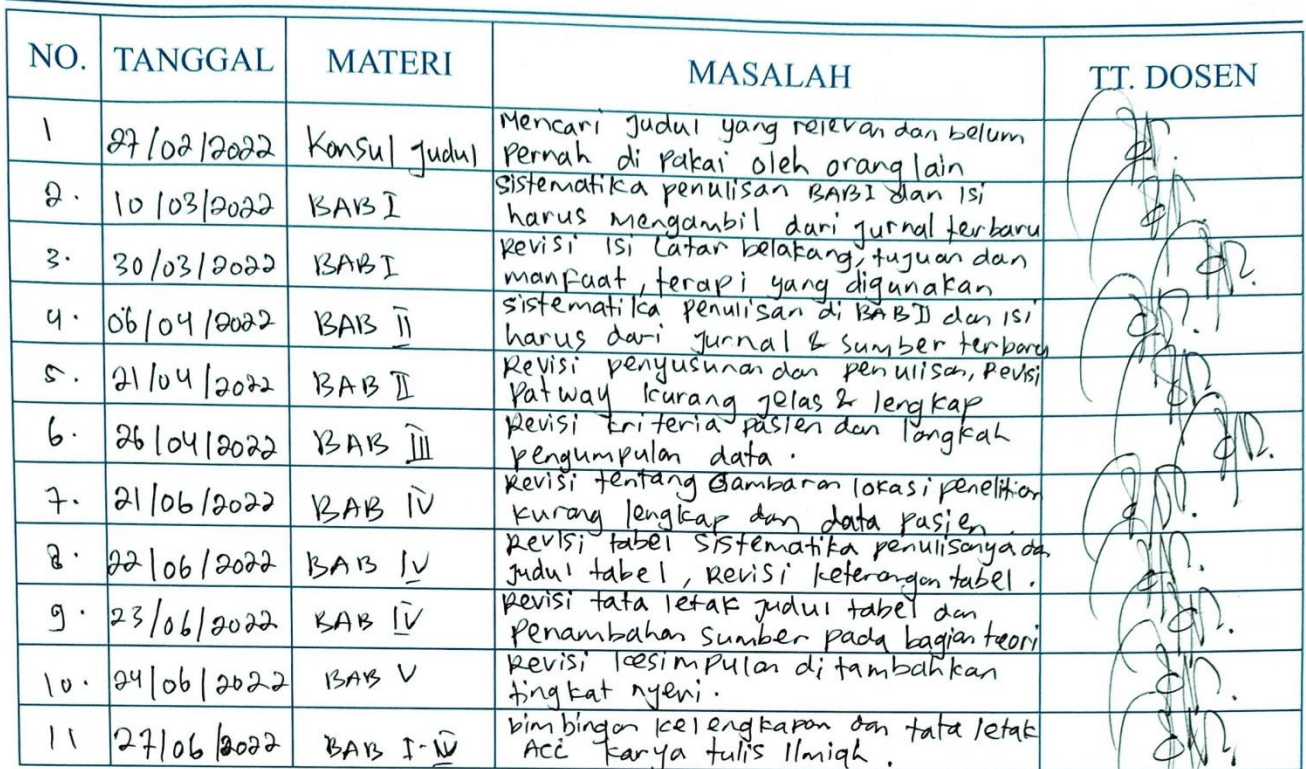 NO. TANGGAL MATERI MASALAH TT. DOSEN
1 27/02/2022 Konsul Judul Mencari Judul yang relevan dan belum
Pernah di Pakai oleh orang lain
2. 10/03/2022 BAB I Sistematika penulisan BAB I dan Isi
harus mengambil dari jurnal terbaru
3. 30/03/2022 BAB I Revisi Isi Latar belakang, tujuan dan
manfaat, terapi yang digunakan
4. 06/04/2022 BAB II Sistematika Penulisan di BAB II dan Isi
harus dari Jurnal & Sumber terbaru
5. 21/04/2022 BAB II Revisi penyusunan dan penulisan, Revisi
Patway kurang jelas & lengkap
6. 26/04/2022 BAB III Revisi kriteria pasien dan langkah
pengumpulan data.
7. 21/06/2022 BAB IV Revisi tentang Gambaran lokasi penelitian
kurang lengkap dan data pasien.
8. 22/06/2022 BAB IV Revisi tabel Sistematika penulisanya da
Judul tabel, Revisi keterangan tabel.
9. 23/06/2022 BAB IV Revisi tata letak judul tabel dan
Penambahan Sumber pada bagian teori
10. 24/06/2022 BAB V Revisi kesimpulan di tambahkan
tingkat nyeri.
11 27/06/2022 BAB I-IV bimbingan kelengkapan dan tata letak
ACC Karya tulis Ilmiah.